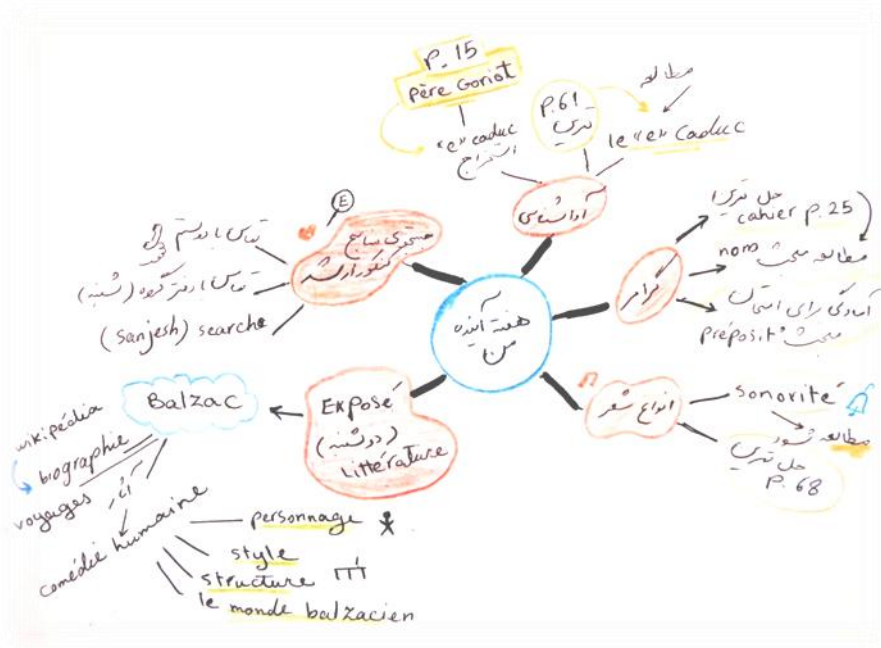 هفته آینده
من
P. 15
Père Goriot
"e" caduc
استخراج
P. 61
تمرین
مطالعه
le "e" Caduc
آواشناسی
گرامر
حل تمرین
cahier p. 25
مطالعه مبحث nom
آمادگی برای امتحان
مبحث préposit°
انواع شعر
sonorité
مطالعه شود
حل تمرین
P. 68
Exposé
(دوشنبه)
Littérature
Balzac
wikipédia
biographie
voyages
آثار
comédie humaine
personnage
style
structure
le monde balzacien
جستجوی منابع
کنکور ارشد
E
تماس با دوستم
تماس با دفتر گروه (شنبه)
(sanjesh) searche